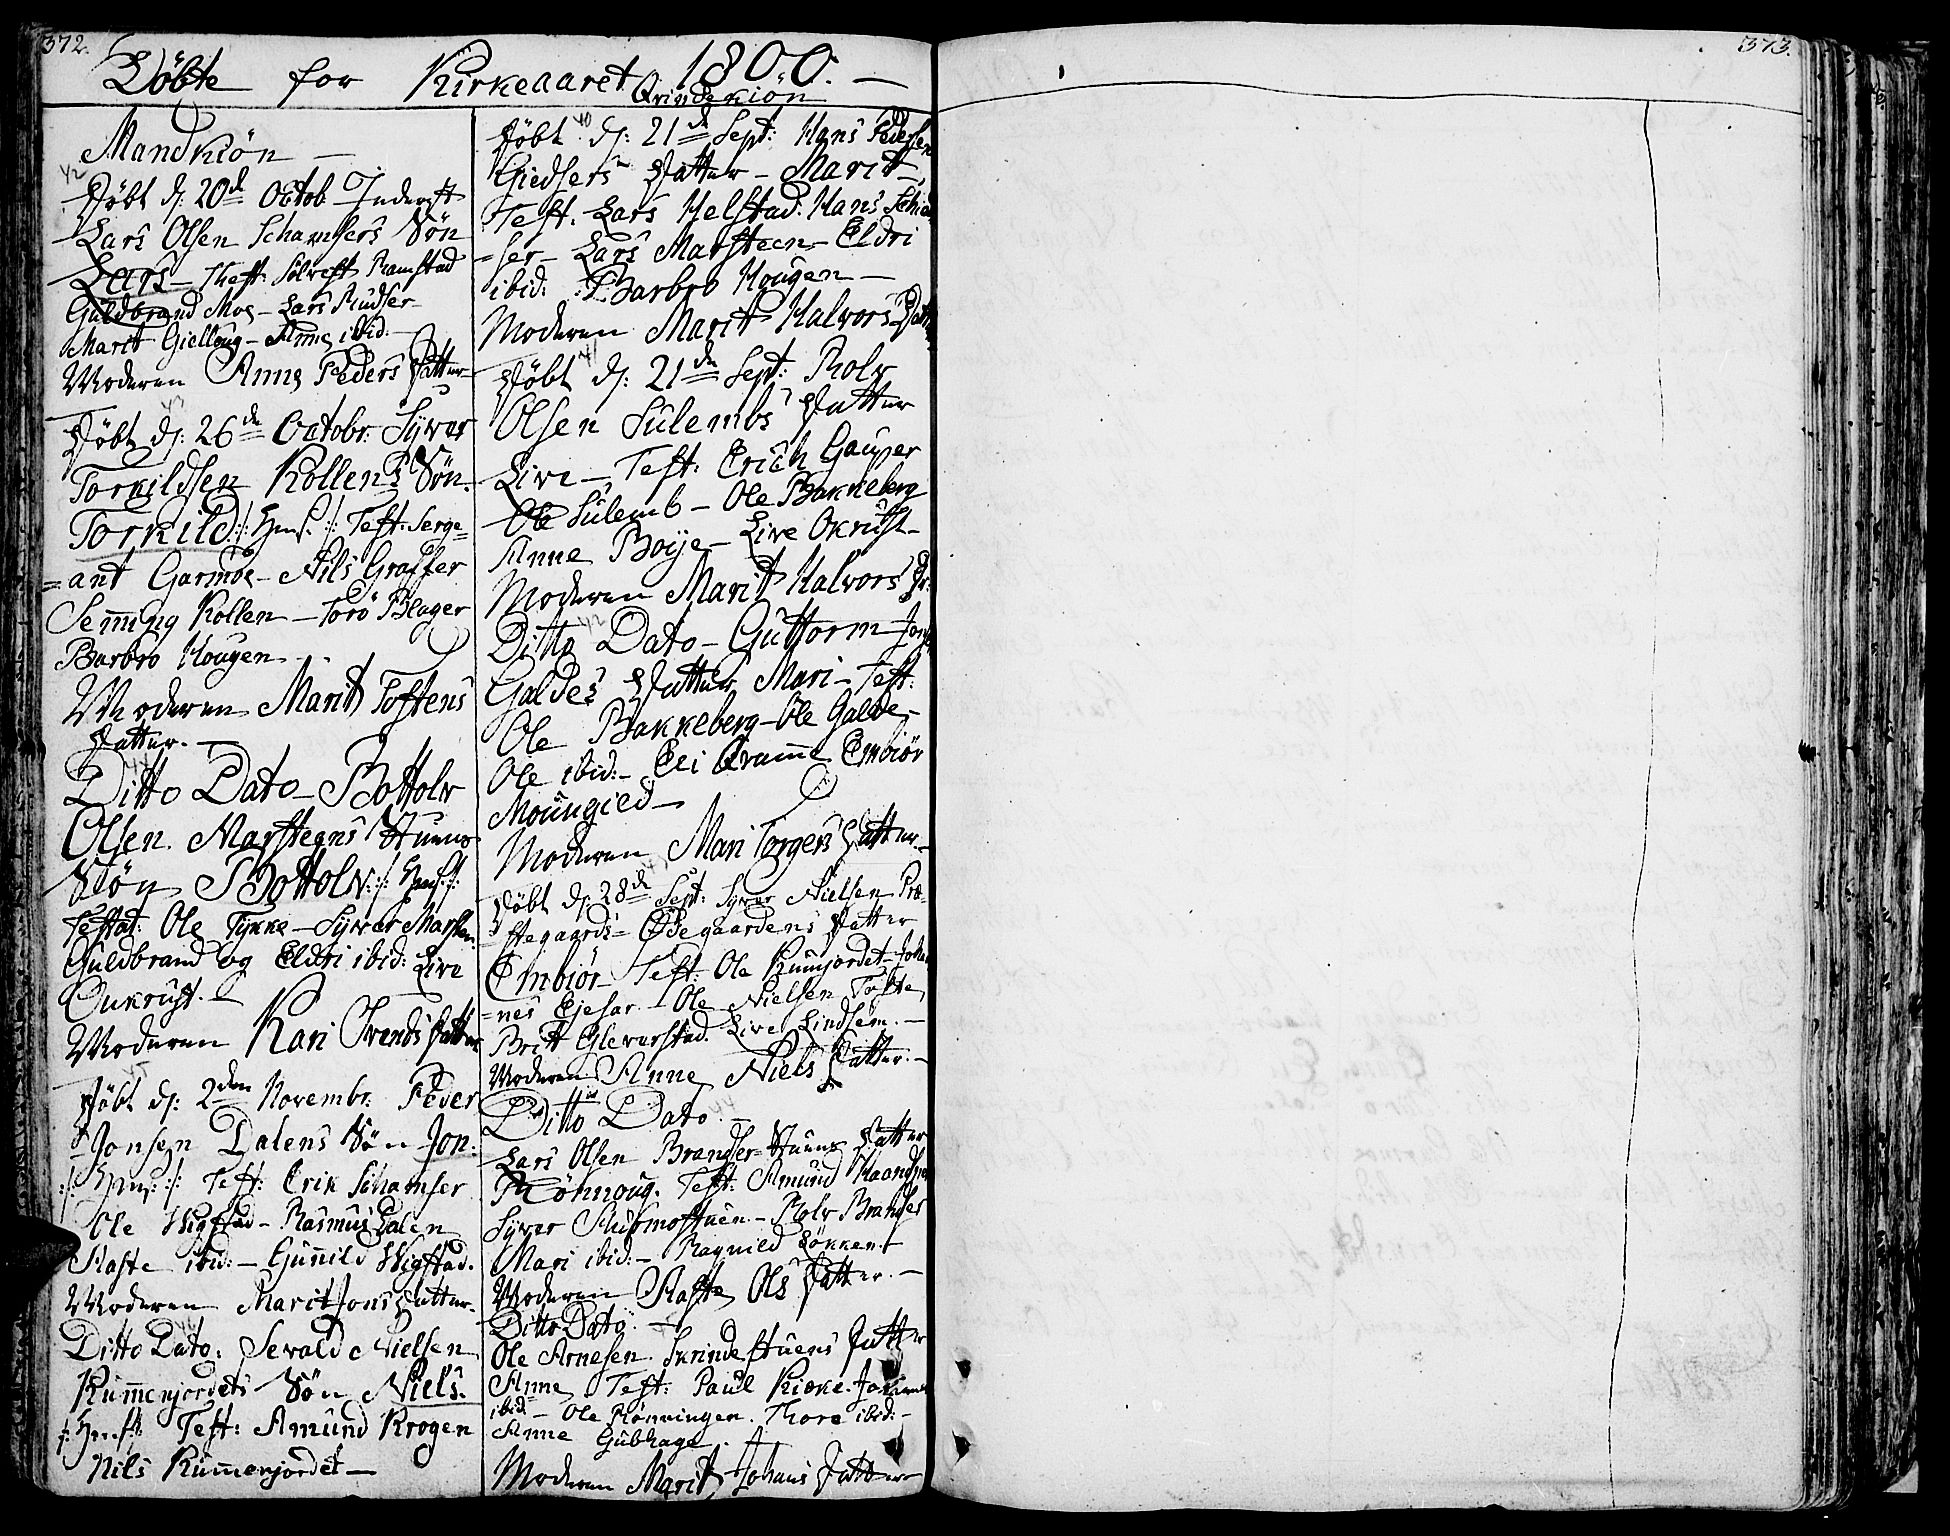 372.
Döbte for Kirkeaaret 1800. —
Mandkiön —
42
Döbt d: 20de Octob Inderst
Lars Olsen Schamsers Sön
Lars — Test: Sölvest Ramstad
Guldbrand Moe – Lars Rudser
Marit Gielloug – Anne ibid: —
Moderen Anne Peders Datter
Döbt d: 26de Octobr: Syver
Torkildsen Kollens Sön
Torkild :/: Hms: :/: Test: Serge=
=ant Garmoe – Nils Graffer
Semming Kollen – Torö Blager
Barbro Hougen –
Moderen Marit Tostens
Datter. —
Ditto Dato – Bottolv
Olsen Marsteens Stuens
Sön Bottolv :/: Hms: :/:
Testat: Ole Tykke – Syver Marsten
Guldbrand og Eldri ibid: Live
Onkrust.
Moderen Kari Trends Datter
Döbt d: 2den Novembr: Peder
Jonsen Dalens Sön Jon.
:/: Hms: :/: Test: Erik Schamser
Ole Wigstad – Rasmus Dalen
Raste ibid: – Gunnild Wigstad.
Moderen Marit Jons Datter
Ditto Dato: Sevald Nielsen
Rummenjordets Sön Niels.
:/: Hms :/: Test: Amund Krogen
Nils Rummenjordet —
Qvindekiön
40
Döbt d: 21de Sept: Hans Pedersen
Giedsers Datter – Marit –
Test. Lars Helstad. Hans Schiel
=ser – Lars Marsteen – Eldri
ibid: Barbro Hougen —
Moderen Marit Halvors Datter
41
Döbt d: 21de Sept: Rolv
Olsen Sulembs Datter
Live –, Test: Erich Gauper
Ole Sulemb – Ole Bakkeberg
Anne Boye – Live Okrust –
Moderen Marit Halvors Dr:
42
Ditto Dato – Guttorm
Galdes Datter Mari – Test:
Ole Bakkeberg – Ole Galde –
Ole ibid: – Eli Qvamme Embiör
Moungied —
Moderen Mari Torgers Datter –
Döbt d: 28de Sept: Syver Nielsen Præ=
=stegaards= Ødegaardens Datter
Embiör – Test: Ole Rumjordet – Johan
=nes Ejesar – Ole Nielsen Tofte
Britt Glevarstad. Live Lindsem. —
Moderen Anne Niels Datter. —
44
Ditto Dato
Lars Olsen Brandser= Stuens Datter
Rönnoug. Test: Amund
Syver – Rolv Brandser
Mari ibid: – Ragnild Lökken. –
Moderen Raste Ols Datter. —
Ditto Dato. —
Ole Arnesen Skrindestuens Datter
Anne, Test: Paul Kieke. Johannes
ibid – Ole Rönningen. Thore ibid: –
Anne Gubhage. –
Moderen Marit Johans Datter
373.